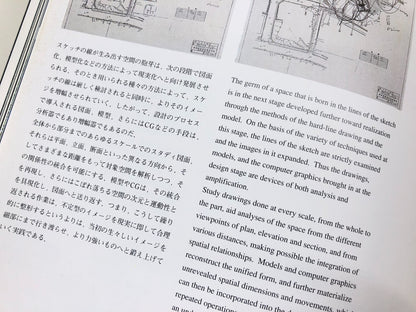 スケッチの線が生み出す空間の胚芽は、次の段階で図面
化、模型化などの方法によって現実化へと向け発展させ
られる。そのとき用いられる種々の方法によって、スケ
ッチの線は厳しく検討されると同時に、よりそのイメー
ジを増幅させられていく。したがって、設計のプロセス
で導入される図面、模型、さらにはCGなどの手段は、
分析器でもあり増幅器でもあるのだ。
全体から部分までのあらゆるスケールでのスタディ図面、
それらは平面、立面、断面といった異なる方向から、そ
してさまざまな距離をもって対象空間を解析しつつ、そ
の関係性の統合を可能にする。模型やCGは、その統合
を再現し、さらにはこぼれ落ちる空間の次元と運動性と
を具現化し、図面へと送り返す。つまり、こうして繰り
返される作業は、不定型のイメージを現実に即して合理
的に整形するというよりは、当初の生々しいイメージを
細部にまで行き渉らせ、より力強いものへと鍛え上げて
いく実践である。
The germ of a space that is born in the lines of the sketch
is in the next stage developed further toward realization
through the methods of the hard-line drawing and the
model. On the basis of the variety of techniques used at
this stage, the lines of the sketch are strictly examined
and the images in it expanded. Thus the drawings,
models, and the computer graphics brought in at the
design stage are devices of both analysis and
amplification.
Study drawings done at every scale, from the whole to
the part, aid analyses of the space from the different
viewpoints of plan, elevation and section, and from
various distances, making possible the integration of
spatial relationships. Models and computer graphics
reconstruct the unified form, and further materialize
unrevealed spatial dimensions and movements, which
can then be incorporated into the
repeated operation